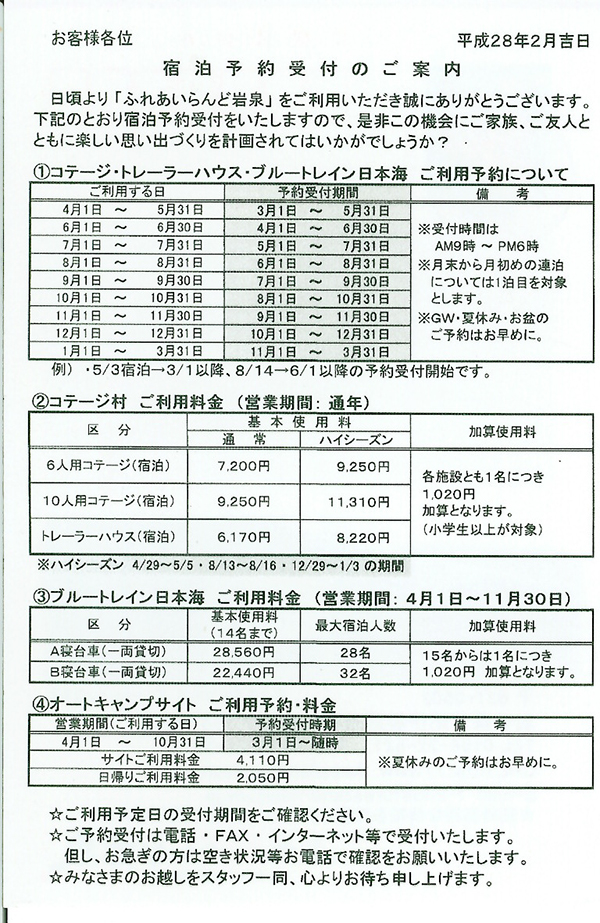 お客様各位　平成28年2月吉日
宿泊予約受付のご案内
日頃より「ふれあいらんど岩泉」をご利用いただき誠にありがとうございます。
下記のとおり宿泊予約受付をいたしますので、是非この機会にご家族、ご友人と
ともに楽しい思い出づくりを計画されてはいかがでしょうか？
①コテージ・トレーラーハウス・ブルートレイン日本海　ご利用予約について
ご利用する日　予約受付期間　備　考
4月1日　～　5月31日　3月1日　～　5月31日
6月1日　～　6月30日　4月1日　～　6月30日　※受付時間は
7月1日　～　7月31日　5月1日　～　7月31日　AM9時 ～ PM6時
8月1日　～　8月31日　6月1日　～　8月31日　※月末から月初めの連泊
9月1日　～　9月30日　7月1日　～　9月30日　については1泊目を対象
10月1日　～　10月31日　8月1日　～　10月31日　とします。
11月1日　～　11月30日　9月1日　～　11月30日　※GW・夏休み・お盆の
12月1日　～　12月31日　10月1日　～　12月31日　ご予約はお早めに。
1月1日　～　3月31日　11月1日　～　3月31日
例）・5/3宿泊→3/1以降、8/14→6/1以降の予約受付開始です。
②コテージ村　ご利用料金　（営業期間：通年）
区　分　基　本　使　用　料　加算使用料
通　常　ハイシーズン
6人用コテージ（宿泊）　7,200円　9,250円　各施設とも1名につき
10人用コテージ（宿泊）　9,250円　11,310円　1,020円
加算となります。
トレーラーハウス（宿泊）　6,170円　8,220円　（小学生以上が対象）
※ハイシーズン　4/29～5/5・8/13～8/16・12/29～1/3 の期間
③ブルートレイン日本海　ご利用料金　（営業期間：4月1日～11月30日）
区　分　基本使用料　最大宿泊人数　加算使用料
（14名まで）
A寝台車（一両貸切）　28,560円　28名　15名からは1名につき
B寝台車（一両貸切）　22,440円　32名　1,020円　加算となります。
④オートキャンプサイト　ご利用予約・料金
営業期間（ご利用する日）　予約受付時期　備　考
4月1日　～　10月31日　3月1日～随時
サイトご利用料金　4,110円　※夏休みのご予約はお早めに。
日帰りご利用料金　2,050円
☆ご利用予定日の受付期間をご確認ください。
☆ご予約受付は電話・FAX・インターネット等で受付いたします。
但し、お急ぎの方は空き状況等お電話で確認をお願いいたします。
☆みなさまのお越しをスタッフ一同、心よりお待ち申し上げます。